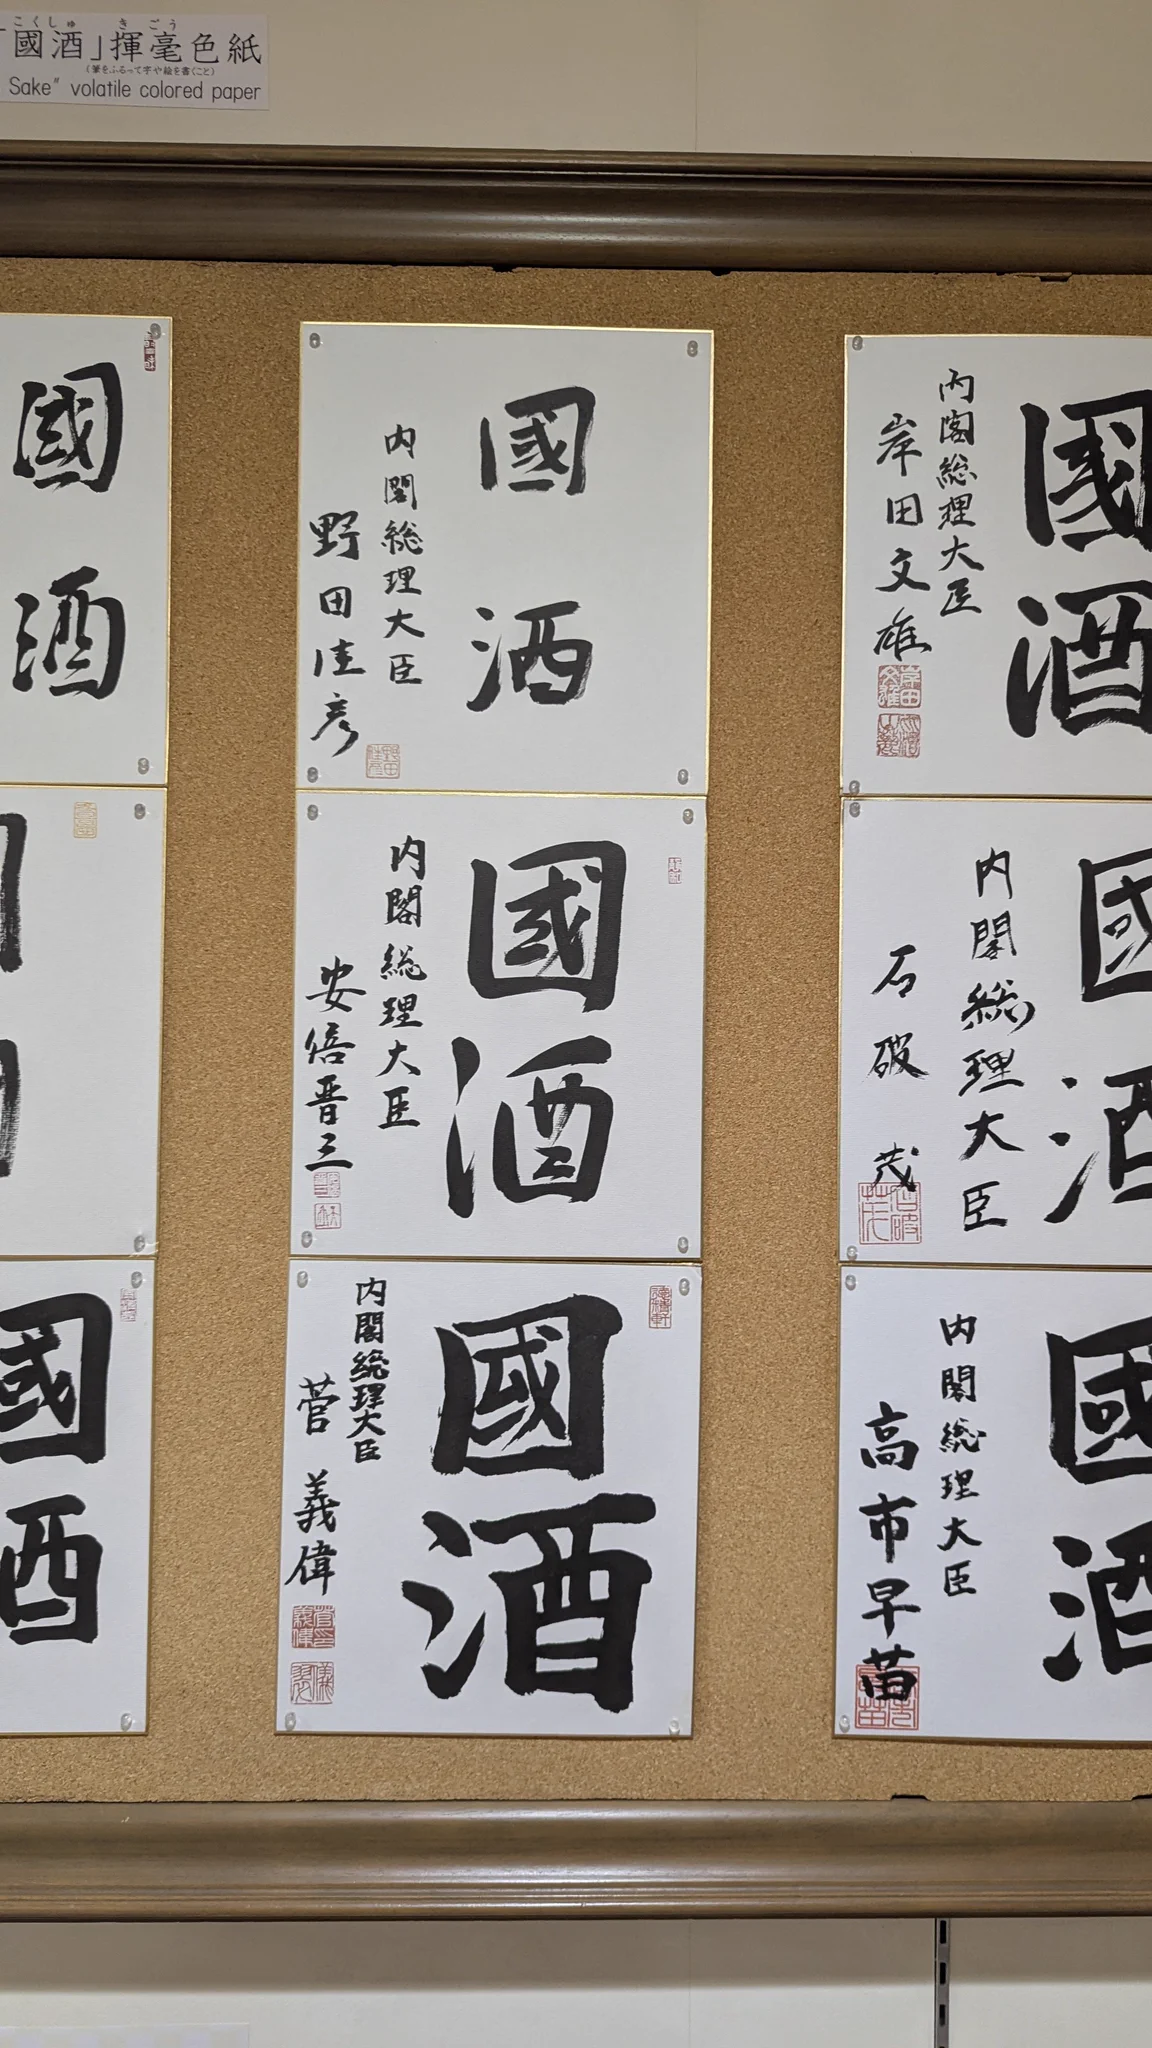 「國酒」揮毫色紙
こくしゅ きごう
(筆をふるって字や絵を書くこと)
Sake" volatile colored paper
國酒
國酒
内閣総理大臣
野田佳彦
國酒
内閣総理大臣
岸田文雄
國酒
内閣総理大臣
安倍晋三
國酒
内閣総理大臣
石破茂
國酒
國酒
内閣総理大臣
菅義偉
國酒
内閣総理大臣
高市早苗